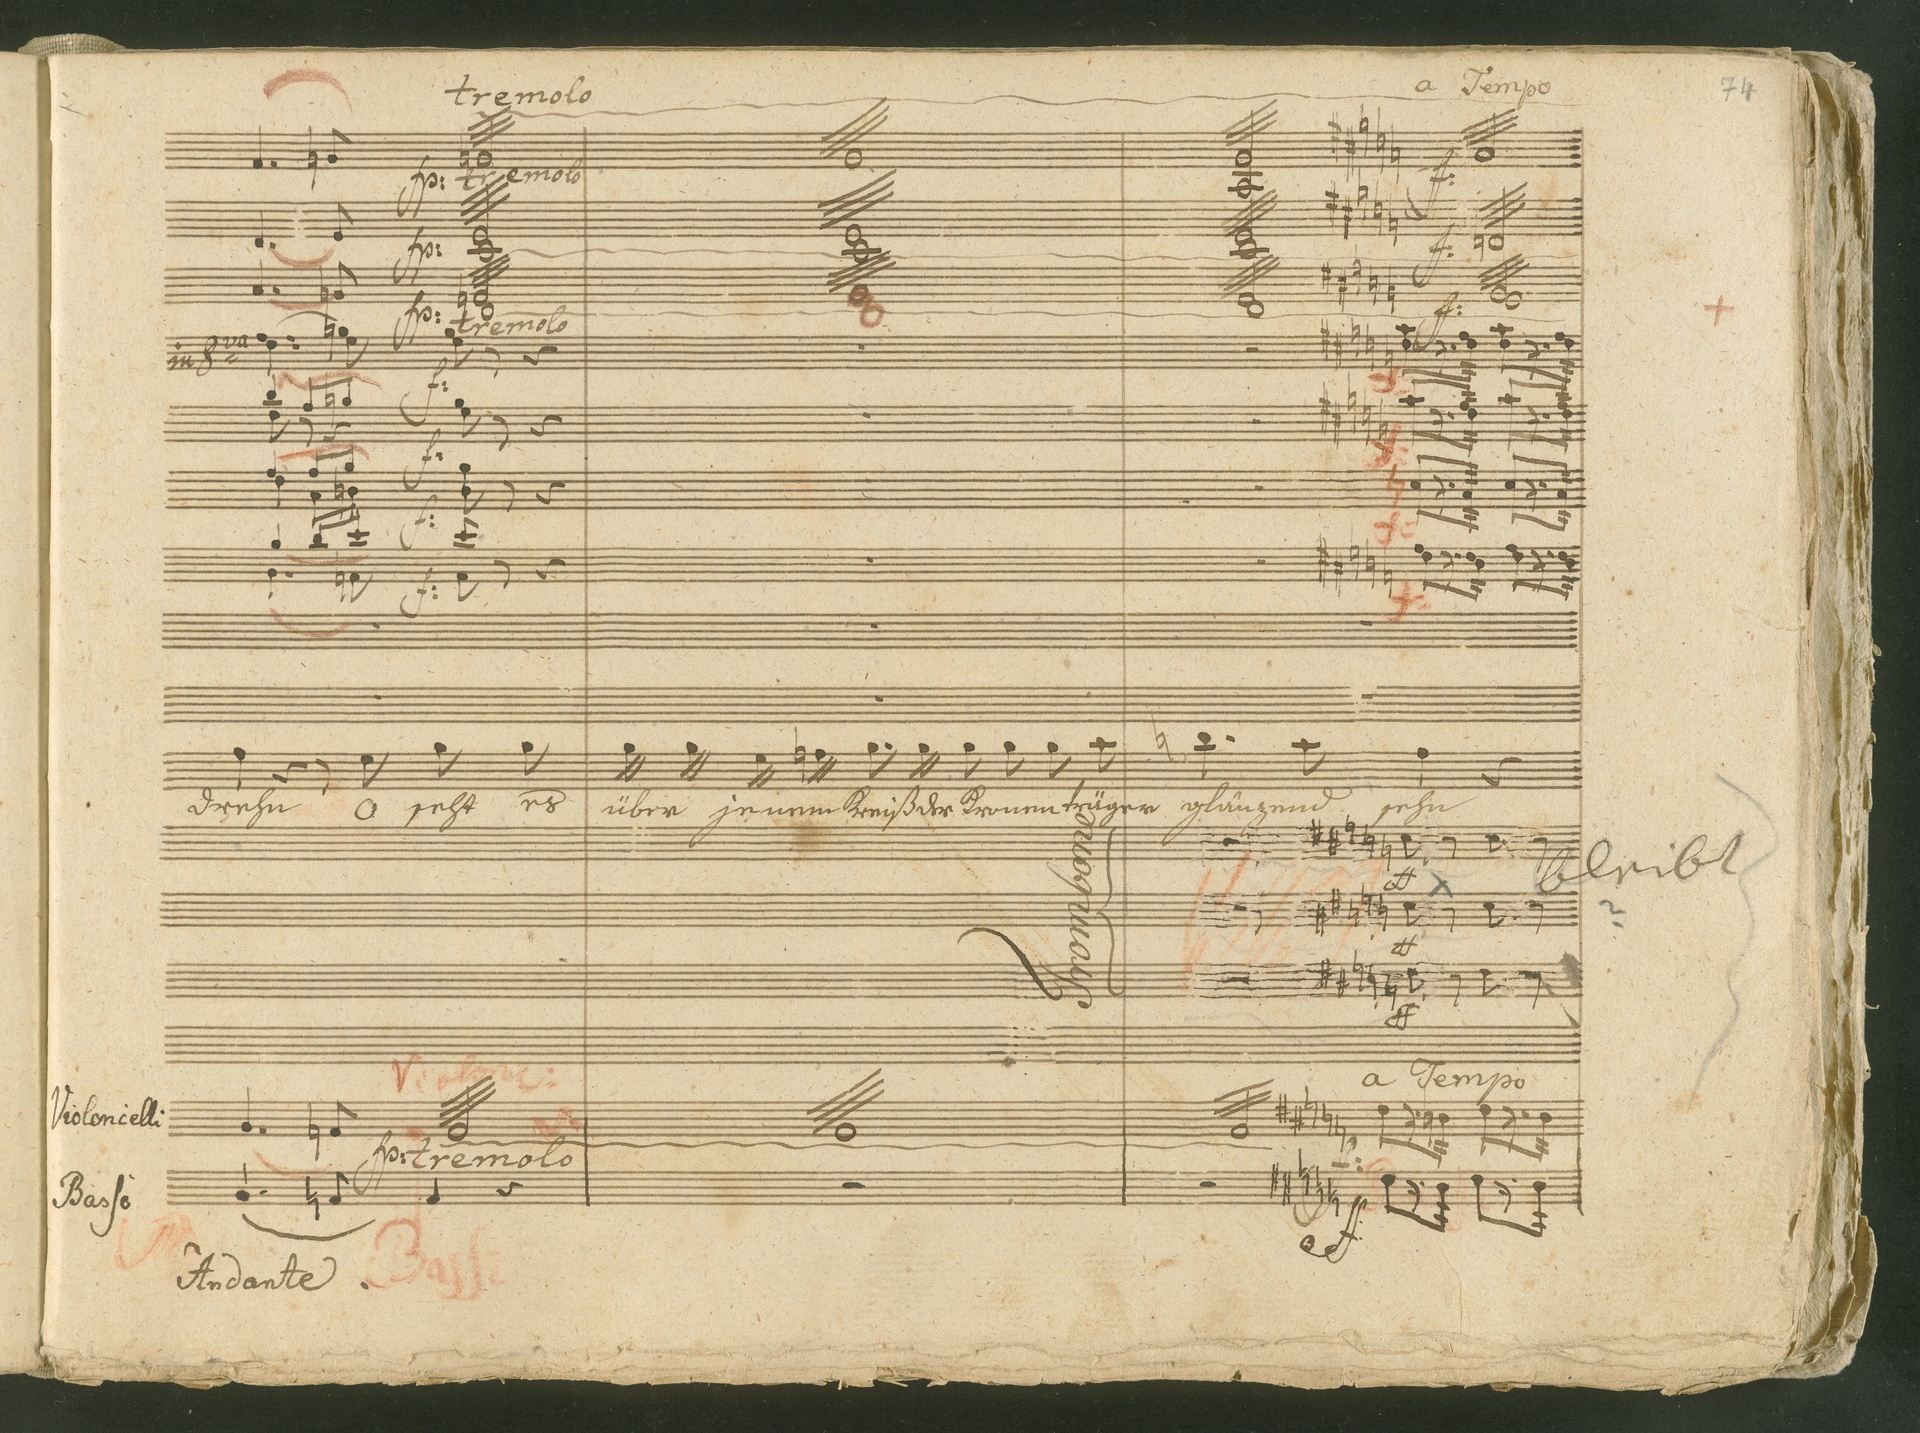 tremolo
a Tempo
74
fp: tremolo
f:
fp:
f:
fp: tremolo
f:
in 8va
f:
f:
f:
f:
f:
f:
f:
drehn O seht es über jenem Kreiß der Kronenträger glänzend sehn
Tromboni
bleibt
ff
ff
ff
a Tempo
Violonc:
Violoncelli
fp: tremolo
f:
Bassi
ff
Bassi
Andante.